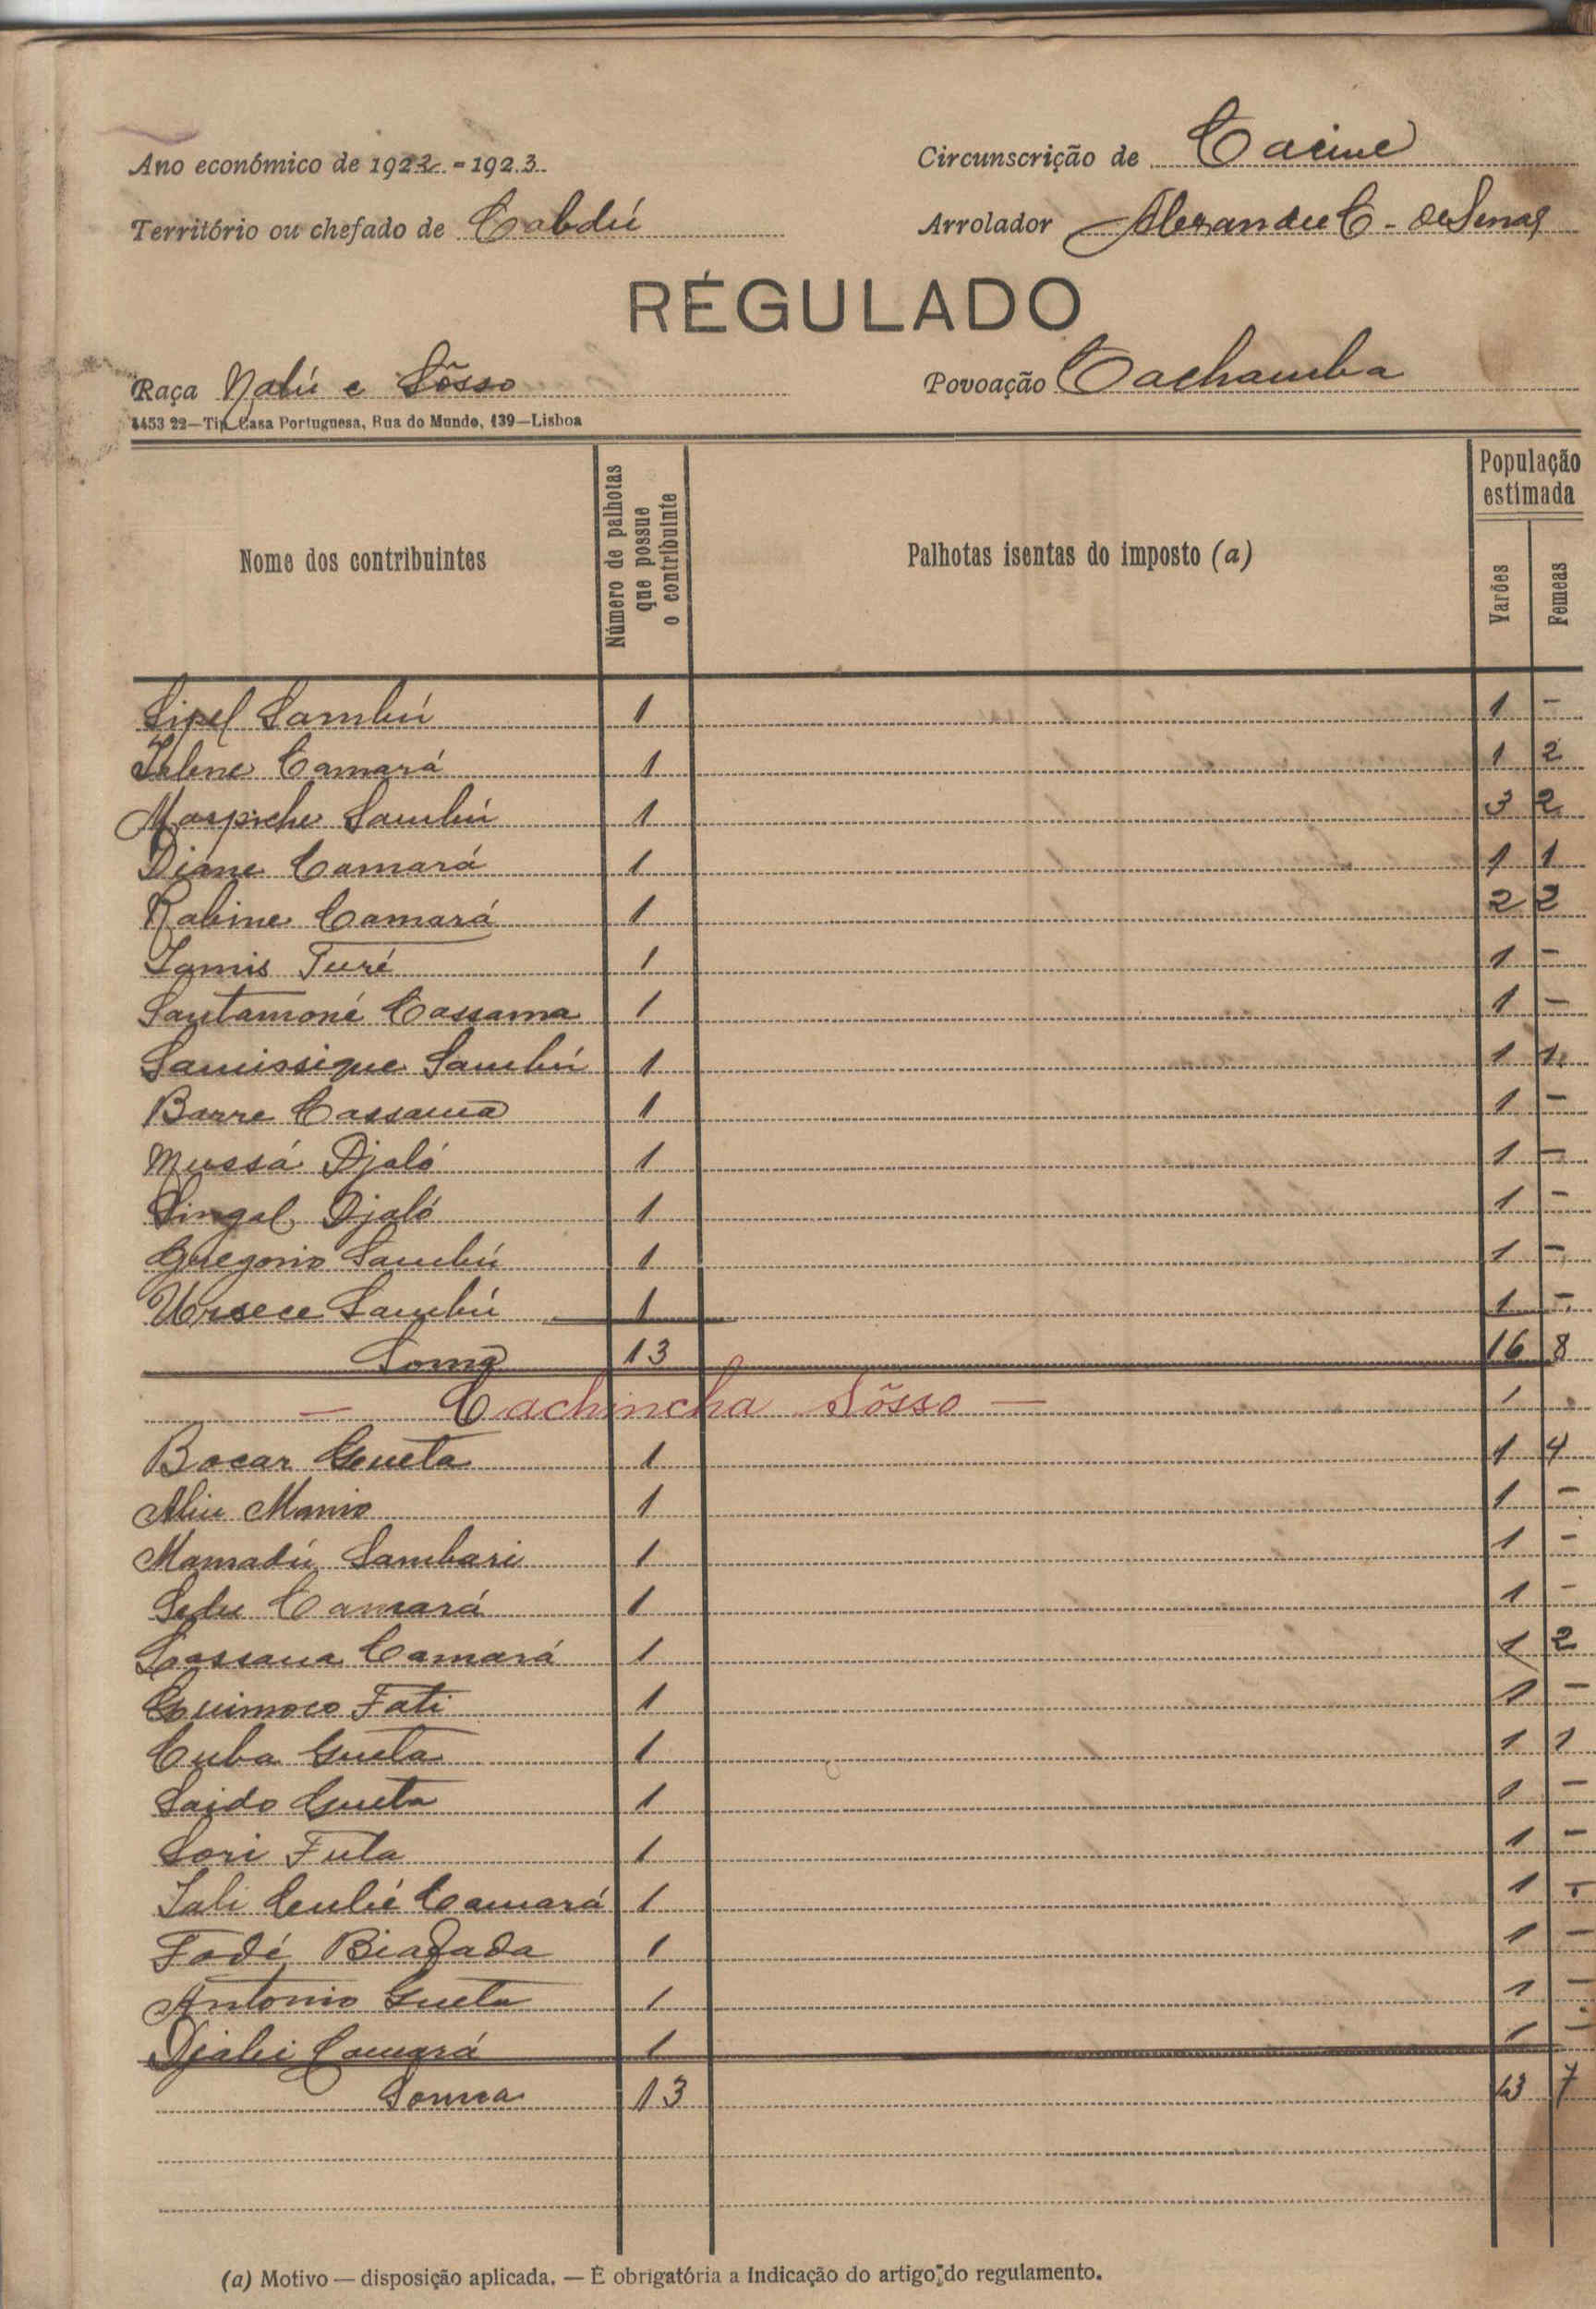 Ano económico de 1922-1923
Circunscrição de Cacine
Território ou chefado de Cabdú
Arrolador Alexandre C. de Sena
RÉGULADO
Raça Nalú e Sôsso
Povoação Cachamba
4453 22—Tip. Casa Portuguesa, Rua do Mundo, 139—Lisboa
Nome dos contribuintes
Número de palhotas que possue o contribuinte
Palhotas isentas do imposto (a)
População estimada
Varões
Femeas
Sipel Sambú 1 1 -
Camará 1 1 2
Sambú 1 3 2
Diane Camará 1 1 1
Rabine Camará 1 2 2
Lamis Turé 1 1 -
Santamoné Cassama 1 1 -
Samissique Sambú 1 1 1
Barre Cassama 1 1 -
Mussá Djaló 1 1 -
Singal Djaló 1 1 -
Gregorio Sambú 1 1 -
Sambú 1 1 -
Soma 13 16 8
— Cachincha Sõsso —
Bocar Gueta 1 1 4
Aliu Manio 1 1 -
Mamadú Sambari 1 1 -
Camará 1 1 -
Lassana Camará 1 1 2
Guimoco Fati 1 1 -
Cuba Gueta 1 1 1
Saido Gueta 1 1 -
Sori Fula 1 1 -
Camará 1 1 -
Fodé Biafada 1 1 -
Antonio Gueta 1 1 -
Djabi Camará 1 1 -
Somma 13 13 7
(a) Motivo — disposição aplicada. — É obrigatória a indicação do artigo do regulamento.